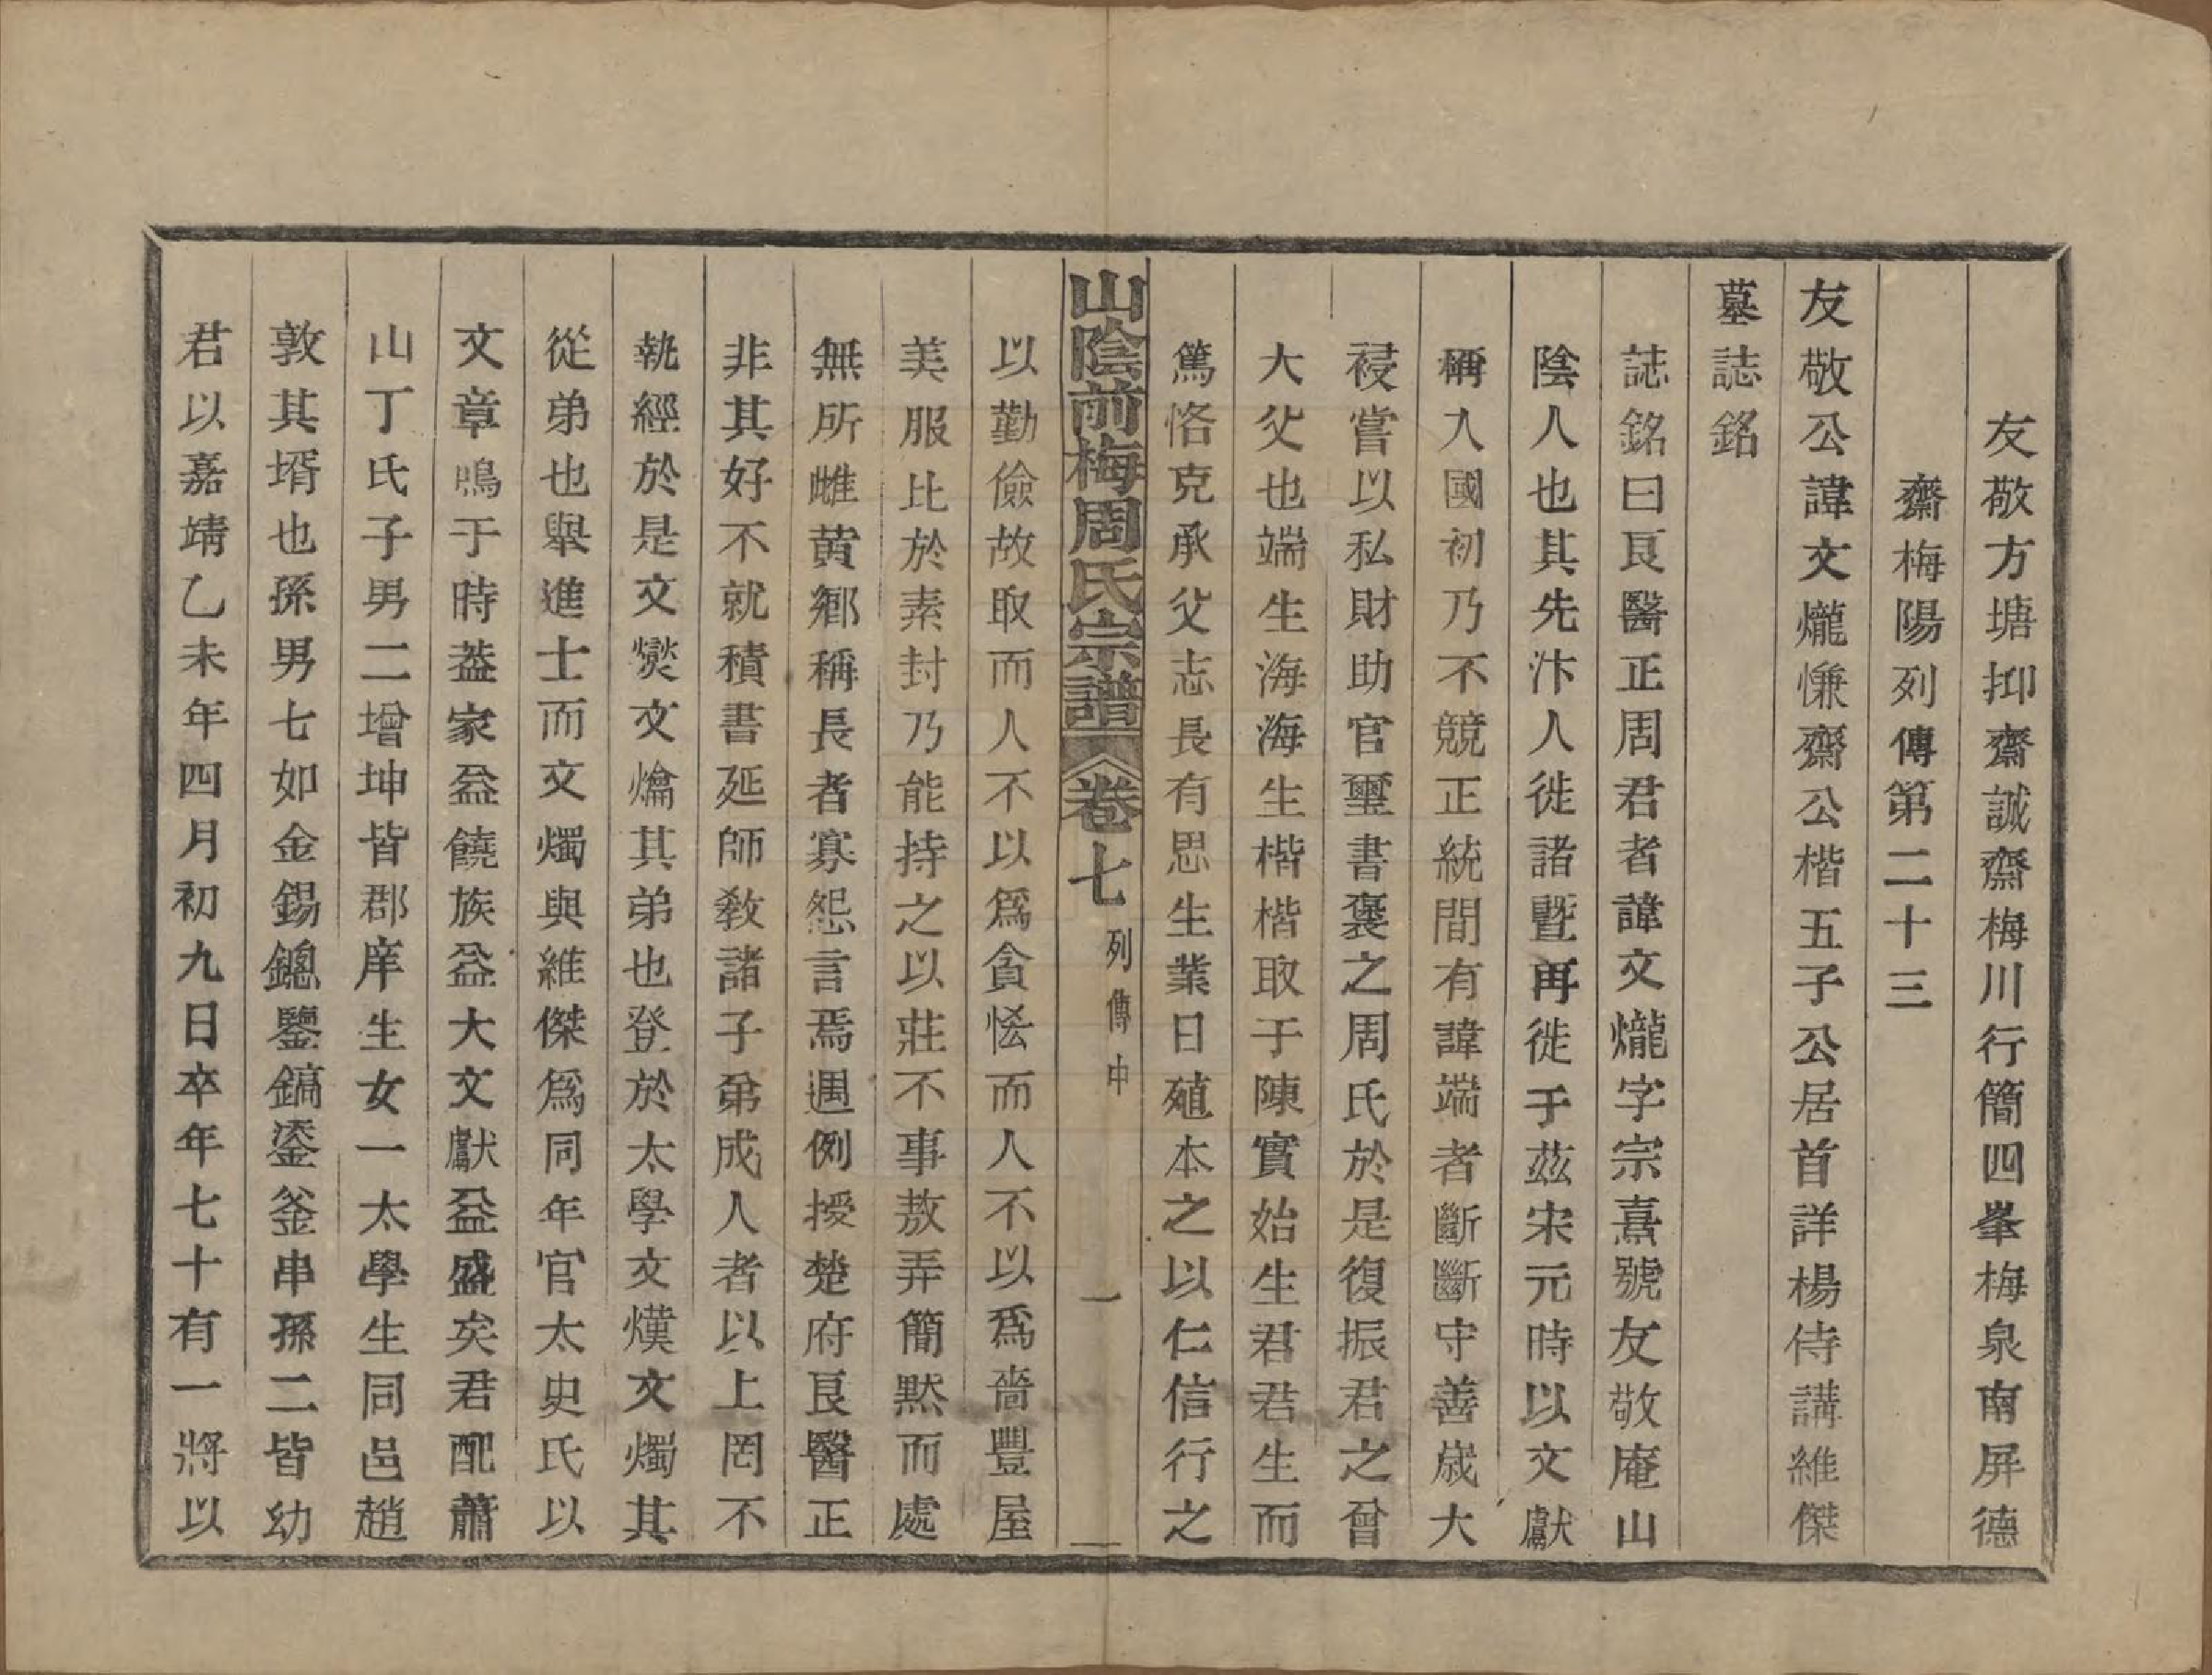 友敬方塘抑齋誠齋梅川行簡四峯梅泉南屏德
齋梅陽列傳第二十三
友敬公諱文爖慊齋公楷五子公居首詳楊侍講維傑
墓誌銘
誌銘曰良醫正周君者諱文爖字宗熹號友敬庵山
陰人也其先汴人徙諸暨再徙于茲宋元時以文獻
稱入國初乃不競正統間有諱端者斷斷守善歲大
祲嘗以私財助官璽書褒之周氏於是復振君之曾
大父也端生海海生楷楷取于陳實始生君君生而
篤恪克承父志長有思生業日殖本之以仁信行之
山陰前梅周氏宗譜 卷七 列傳中 一
以勤儉故取而人不以爲貪恡而人不以爲嗇豐屋
美服比於素封乃能持之以莊不事敖弄簡默而處
無所雌黃鄉稱長者寡怨言焉遇例授楚府良醫正
非其好不就積書延師敎諸子弟成人者以上罔不
執經於是文爕文爚其弟也登於太學文熯文燭其
從弟也舉進士而文燭與維傑爲同年官太史氏以
文章鳴于時葢家益饒族益大文獻益盛矣君配蕭
山丁氏子男二增坤皆郡庠生女一太學生同邑趙
敦其壻也孫男七如金錫鏓鑒鎬鋈釜串孫二皆幼
君以嘉靖乙未年四月初九日卒年七十有一將以